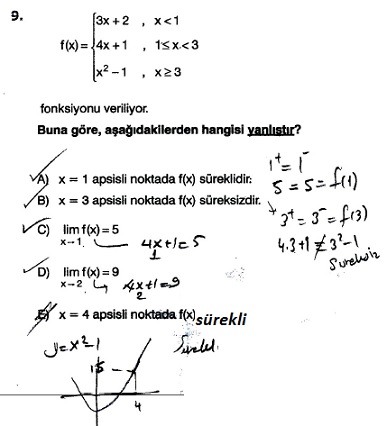 9.
3x + 2 , x < 1
f(x) = 4x + 1 , 1 ≤ x < 3
x² – 1 , x ≥ 3
fonksiyonu veriliyor.
Buna göre, aşağıdakilerden hangisi yanlıştır?
A) x = 1 apsisli noktada f(x) süreklidir.
B) x = 3 apsisli noktada f(x) süreksizdir.
C) lim f(x) = 5
x→1
4x+1 = 5
1
D) lim f(x) = 9
x→2
4x+1 = 9
2
E) x = 4 apsisli noktada f(x) sürekli
1⁺ = 1⁻
5 = 5 = f(1)
3⁺ = 3⁻ = f(3)
4.3+1 ≠ 3²-1
Süreksiz
y = x²-1
15
4